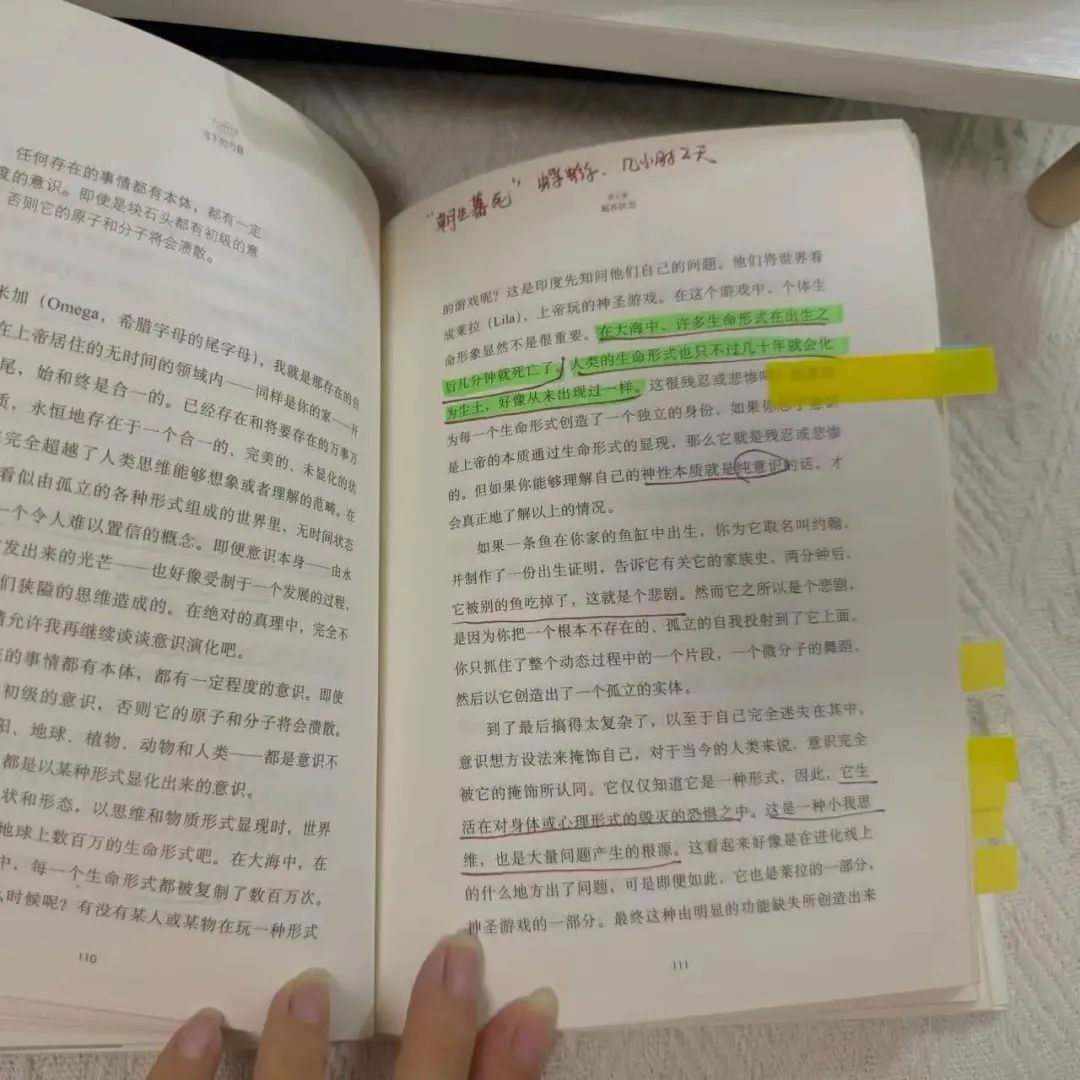 当下的力量
任何存在的事情都有本体，都有一定
度的意识。即使是块石头都有初级的意
否则它的原子和分子将会溃散。
米加（Omega，希腊字母的尾字母），我就是那存在的合
在上帝居住的无时间的领域内——同样是你的家——开
尾，始和终是合一的。已经存在和将要存在的万事万
质，永恒地存在于一个合一的、完美的、未显化的状
完全超越了人类思维能够想象或者理解的范畴。在
看似由孤立的各种形式组成的世界里，无时间状态
一个令人难以置信的概念。即便意识本身——由永
发出来的光芒——也好像受制于一个发展的过程，
们狭隘的思维造成的。在绝对的真理中，完全不
请允许我再继续谈谈意识演化吧。
的事情都有本体，都有一定程度的意识。即使
初级的意识，否则它的原子和分子将会溃散。
阳、地球、植物、动物和人类——都是意识不
都是以某种形式显化出来的意识。
状和形态，以思维和物质形式显现时，世界
地球上数百万的生命形式吧。在大海中，在
中，每一个生命形式都被复制了数百万次。
么时候呢？有没有某人或某物在玩一种形式
110
“朝生暮死” 蜉蝣、几小时 2天
临在状态
的游戏呢？这是印度先知问他们自己的问题。他们将世界看
成莱拉（Lila），上帝玩的神圣游戏。在这个游戏中，个体生
命形象显然不是很重要。在大海中，许多生命形式在出生之
后几分钟就死亡了。人类的生命形式也只不过几十年就会化
为尘土，好像从未出现过一样。这很残忍或悲惨吗
为每一个生命形式创造了一个独立的身份，如果你忘了意识
是上帝的本质通过生命形式的显现，那么它就是残忍或悲惨
的。但如果你能够理解自己的神性本质就是纯意识的话，才
会真正地了解以上的情况。
如果一条鱼在你家的鱼缸中出生，你为它取名叫约翰，
并制作了一份出生证明，告诉它有关它的家族史，两分钟后，
它被别的鱼吃掉了，这就是个悲剧。然而它之所以是个悲剧，
是因为你把一个根本不存在的、孤立的自我投射到了它上面。
你只抓住了整个动态过程中的一个片段，一个微分子的舞蹈，
然后以它创造出了一个孤立的实体。
到了最后搞得太复杂了，以至于自己完全迷失在其中，
意识想方设法来掩饰自己，对于当今的人类来说，意识完全
被它的掩饰所认同。它仅仅知道它是一种形式，因此，它生
活在对身体或心理形式的毁灭的恐惧之中。这是一种小我思
维，也是大量问题产生的根源。这看起来好像是在进化线上
的什么地方出了问题，可是即便如此，它也是莱拉的一部分，
神圣游戏的一部分。最终这种由明显的功能缺失所创造出来
111